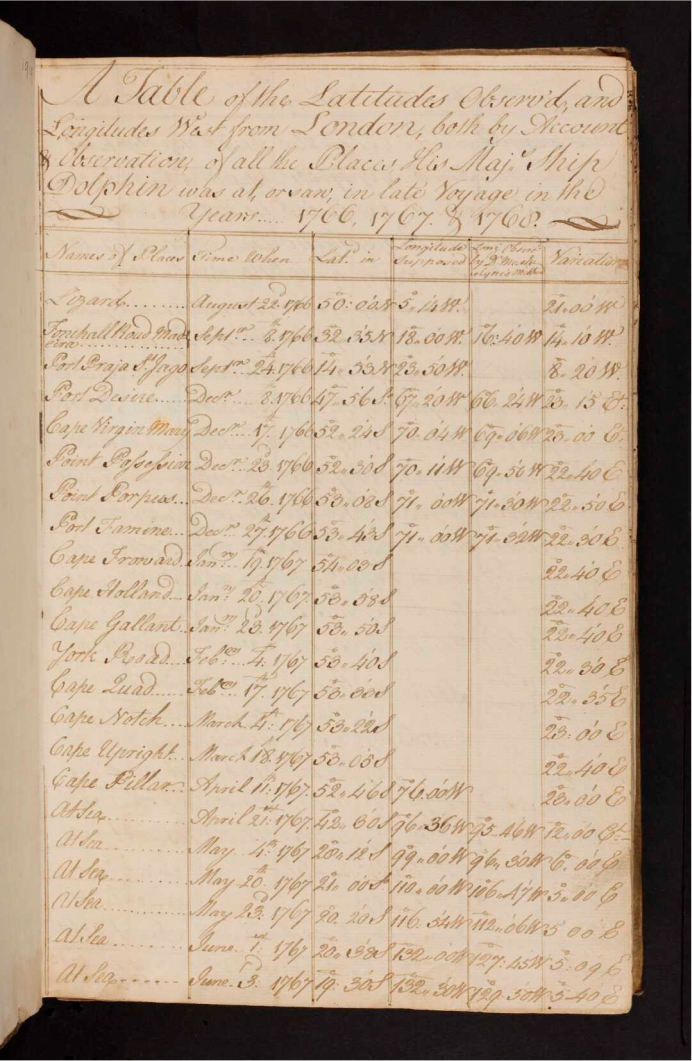 A Table of the Latitudes Observ'd, and
Longitudes West from London, both by Account
& Observation, of all the Places His Maj.s Ship
Dolphin was at, or saw, in late Voyage in the
Years..... 1766, 1767. & 1768.
Names of Places Time When Lat.d in Longitude Supposed Long. Obser by Dr. Variation
Lizard......... August 22.d 1766 50: 00 N 5. 14 W. 21. 00 W
Road Mad eira Sept.er 8. 1766 32. 33 N 18. 00 W. 16: 40 W 14. 10 W.
Port Praja St. Jago Sept.er 24. 1766 14. 53 N 23. 50 W. 8. 20 W.
Port Desire.... Dec.r 8. 1766 47. 56 S. 67. 20 W 66. 24 W 23. 15 Et.
Cape Virgin Mary Dec.r 17. 1766 52. 24 S 70. 04 W 69. 06 W 23. 00 Et.
Point Possession Dec.r 23. 1766 52. 30 S 70. 11 W 69. 50 W 22. 40 E
Point Porpus... Dec.r 26. 1766 53. 08 S 71. 00 W 71. 30 W 22. 50 E
Port Famine... Dec.r 27. 1766 53. 43 S 71. 00 W 71. 32 W 22. 30 E
Cape Froward Jan.ry 19. 1767 54. 03 S 22. 40 E
Cape Holland.... Jan.ry 20. 1767. 53. 58 S 22. 40 E
Cape Gallant... Jan.ry 23. 1767 53. 50 S 22. 40 E
York Road.... Feb.ry 4. 1767 53. 40 S 22. 30 E
Cape Quad.... Feb.ry 17. 1767 53. 33 S 22. 35 E
Cape Notch..... March 4th. 1767 53. 22 S 23: 00 E
Cape Upright... March 18. 1767 53. 03 S 22. 40 E
Cape Pillar... April 11: 1767. 52. 46 S 76. 00 W 23. 00 E
At Sea........ April 21st. 1767. 42. 30 S 96. 36 W 95. 46 W 12. 00 Et.
At Sea......... May 4th. 1767 28. 12 S 99. 00 W 96. 30 W 6. 00 E
At Sea......... May 20. 1767 21. 00 S 110. 00 W 106. 47 W 5. 00 E
At Sea......... May 23.d 1767 20. 20 S 116. 54 W 112. 06 W 5 00 E
At Sea......... June 1st. 1767 20. 38 S 132. 00 W 127: 45 W 5: 09 E
At Sea....... June 3.d 1767 19. 30 S 132. 30 W 129. 50 W 5 40 E